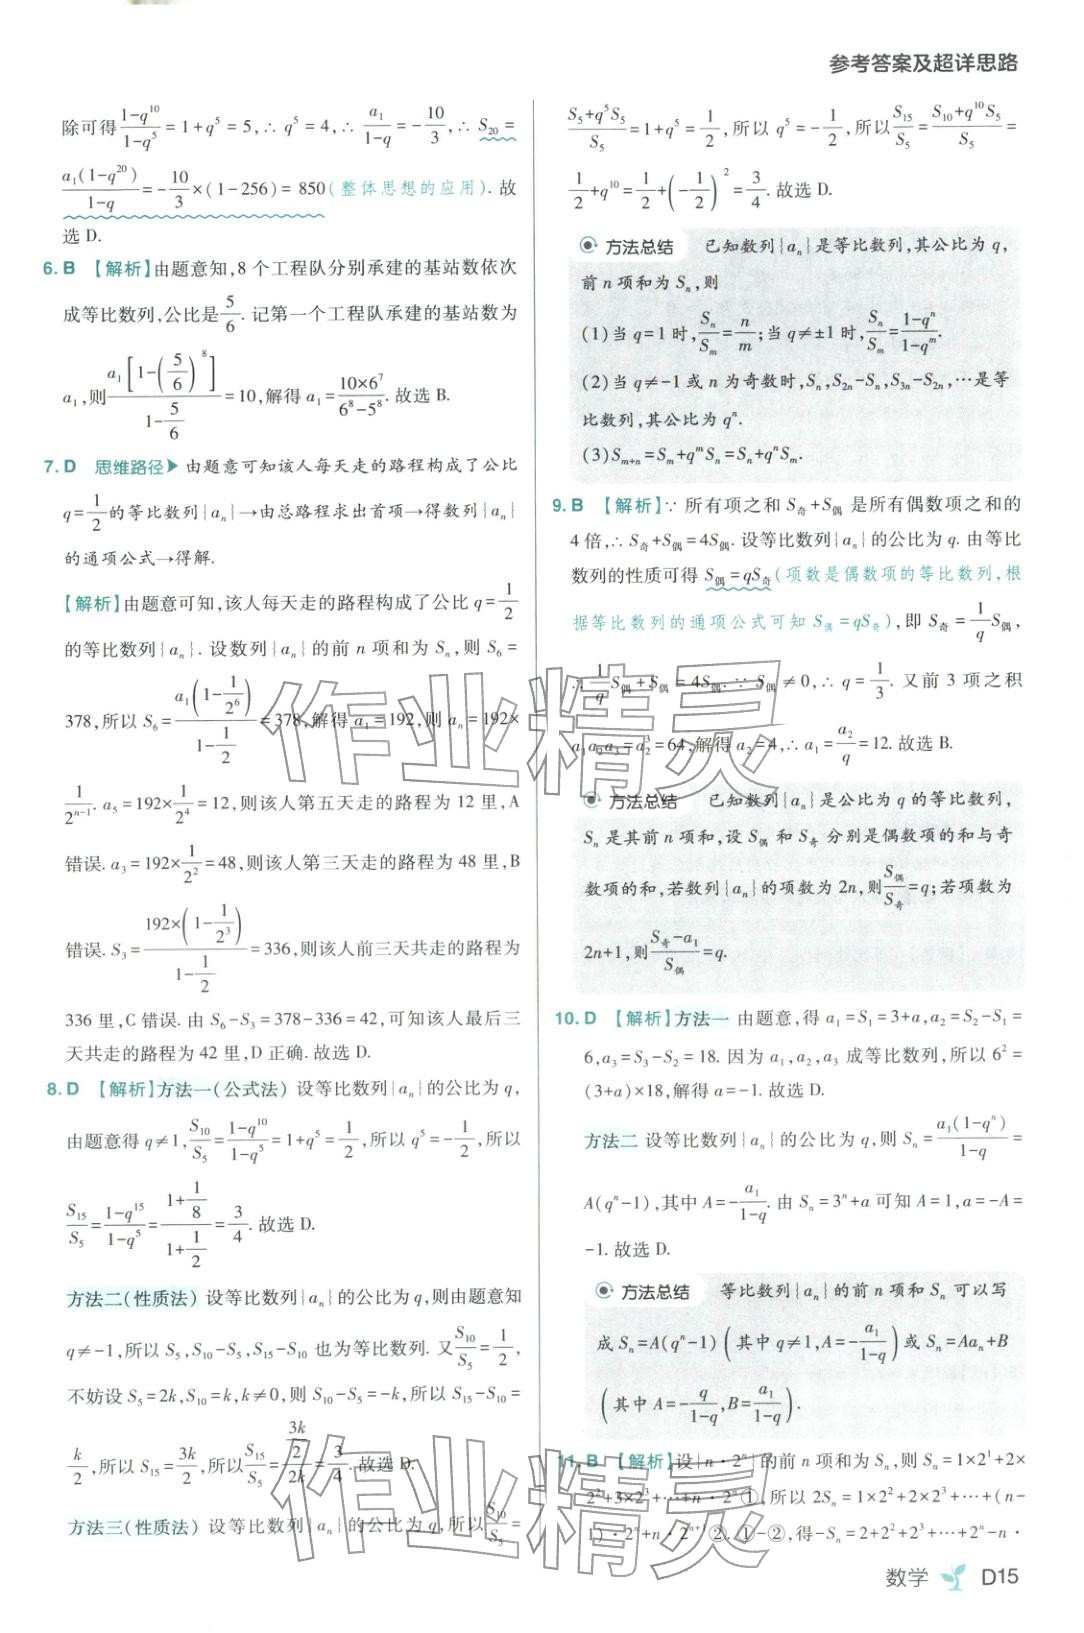 参考答案及超详思路
除可得(1-q^10)/(1-q^5)=1+q^5=5,∴ q^5=4,∴ a₁/(1-q)=-10/3,∴ S₂₀=
a₁(1-q^20)/(1-q)=-10/3×(1-256)=850(整体思想的应用). 故
选 D.
6. B 【解析】由题意知,8 个工程队分别承建的基站数依次
成等比数列,公比是5/6. 记第一个工程队承建的基站数为
a₁,则a₁[1-(5/6)^8]/(1-5/6)=10,解得 a₁=10×6^7/(6^8-5^8). 故选 B.
7. D 思维路径▶ 由题意可知该人每天走的路程构成了公比
q=1/2的等比数列{aₙ}→由总路程求出首项→得数列{aₙ}
的通项公式→得解.
【解析】由题意可知,该人每天走的路程构成了公比 q=1/2
的等比数列{aₙ}. 设数列{aₙ}的前 n 项和为 Sₙ,则 S₆=
378,所以 S₆=a₁(1-1/2^6)/(1-1/2)=378,解得 a₁=192,则 aₙ=192×
1/2^(n-1). a₅=192×1/2^4=12,则该人第五天走的路程为 12 里,A
错误. a₃=192×1/2^2=48,则该人第三天走的路程为 48 里,B
错误. S₃=192×(1-1/2^3)/(1-1/2)=336,则该人前三天共走的路程为
336 里,C 错误. 由 S₆-S₃=378-336=42,可知该人最后三
天共走的路程为 42 里,D 正确. 故选 D.
8. D 【解析】方法一(公式法) 设等比数列{aₙ}的公比为 q,
由题意得 q≠1,S₁₀/S₅=(1-q^10)/(1-q^5)=1+q^5=1/2,所以 q^5=-1/2,所以
S₁₅/S₅=(1-q^15)/(1-q^5)=(1+1/8)/(1+1/2)=3/4. 故选 D.
方法二(性质法) 设等比数列{aₙ}的公比为 q,则由题意知
q≠-1,所以 S₅,S₁₀-S₅,S₁₅-S₁₀也为等比数列. 又S₁₀/S₅=1/2,
不妨设 S₅=2k,S₁₀=k,k≠0,则 S₁₀-S₅=-k,所以 S₁₅-S₁₀=
k/2,所以 S₁₅=3k/2,所以S₁₅/S₅=(3k/2)/2k=3/4. 故选 D.
方法三(性质法) 设等比数列{aₙ}的公比为 q,所以S₁₀/S₅=
(S₅+q^5S₅)/S₅=1+q^5=1/2,所以 q^5=-1/2,所以S₁₅/S₅=(S₁₀+q^10S₅)/S₅=
1/2+q^10=1/2+(-1/2)^2=3/4. 故选 D.
方法总结 已知数列{aₙ}是等比数列,其公比为 q,
前 n 项和为 Sₙ,则
(1)当 q=1 时,Sₙ/Sₘ=n/m;当 q≠±1 时,Sₙ/Sₘ=(1-q^n)/(1-q^m).
(2)当 q≠-1 或 n 为奇数时,Sₙ,S₂ₙ-Sₙ,S₃ₙ-S₂ₙ,…是等
比数列,其公比为 q^n.
(3)Sₘ₊ₙ=Sₘ+q^mSₙ=Sₙ+q^nSₘ.
9. B 【解析】∵ 所有项之和 S奇+S偶 是所有偶数项之和的
4 倍,∴ S奇+S偶=4S偶. 设等比数列{aₙ}的公比为 q. 由等比
数列的性质可得 S偶=qS奇(项数是偶数项的等比数列,根
据等比数列的通项公式可知 S偶=qS奇),即 S奇=1/q S偶,
∴ 1/q S偶+S偶=4S偶. ∵ S偶≠0,∴ q=1/3. 又前 3 项之积
a₁a₂a₃=a₂^3=64,解得 a₂=4,∴ a₁=a₂/q=12. 故选 B.
方法总结 已知数列{aₙ}是公比为 q 的等比数列,
Sₙ是其前 n 项和,设 S偶 和 S奇 分别是偶数项的和与奇
数项的和,若数列{aₙ}的项数为 2n,则S偶/S奇=q;若项数为
2n+1,则(S奇-a₁)/S偶=q.
10. D 【解析】方法一 由题意,得 a₁=S₁=3+a,a₂=S₂-S₁=
6,a₃=S₃-S₂=18. 因为 a₁,a₂,a₃ 成等比数列,所以 6^2=
(3+a)×18,解得 a=-1. 故选 D.
方法二 设等比数列{aₙ}的公比为 q,则 Sₙ=a₁(1-q^n)/(1-q)=
A(q^n-1),其中 A=-a₁/(1-q). 由 Sₙ=3^n+a 可知 A=1,a=-A=
-1. 故选 D.
方法总结 等比数列{aₙ}的前 n 项和 Sₙ 可以写
成 Sₙ=A(q^n-1)(其中 q≠1,A=-a₁/(1-q))或 Sₙ=Aaₙ+B
(其中 A=-q/(1-q),B=a₁/(1-q)).
11. B 【解析】设{n·2^n}的前 n 项和为 Sₙ,则 Sₙ=1×2^1+2×
2^2+3×2^3+…+n·2^n①,所以 2Sₙ=1×2^2+2×2^3+…+(n-
1)·2^n+n·2^(n+1)②. ①-②,得-Sₙ=2+2^2+2^3+…+2^n-n·
数学 D15
作业精灵
作业精灵